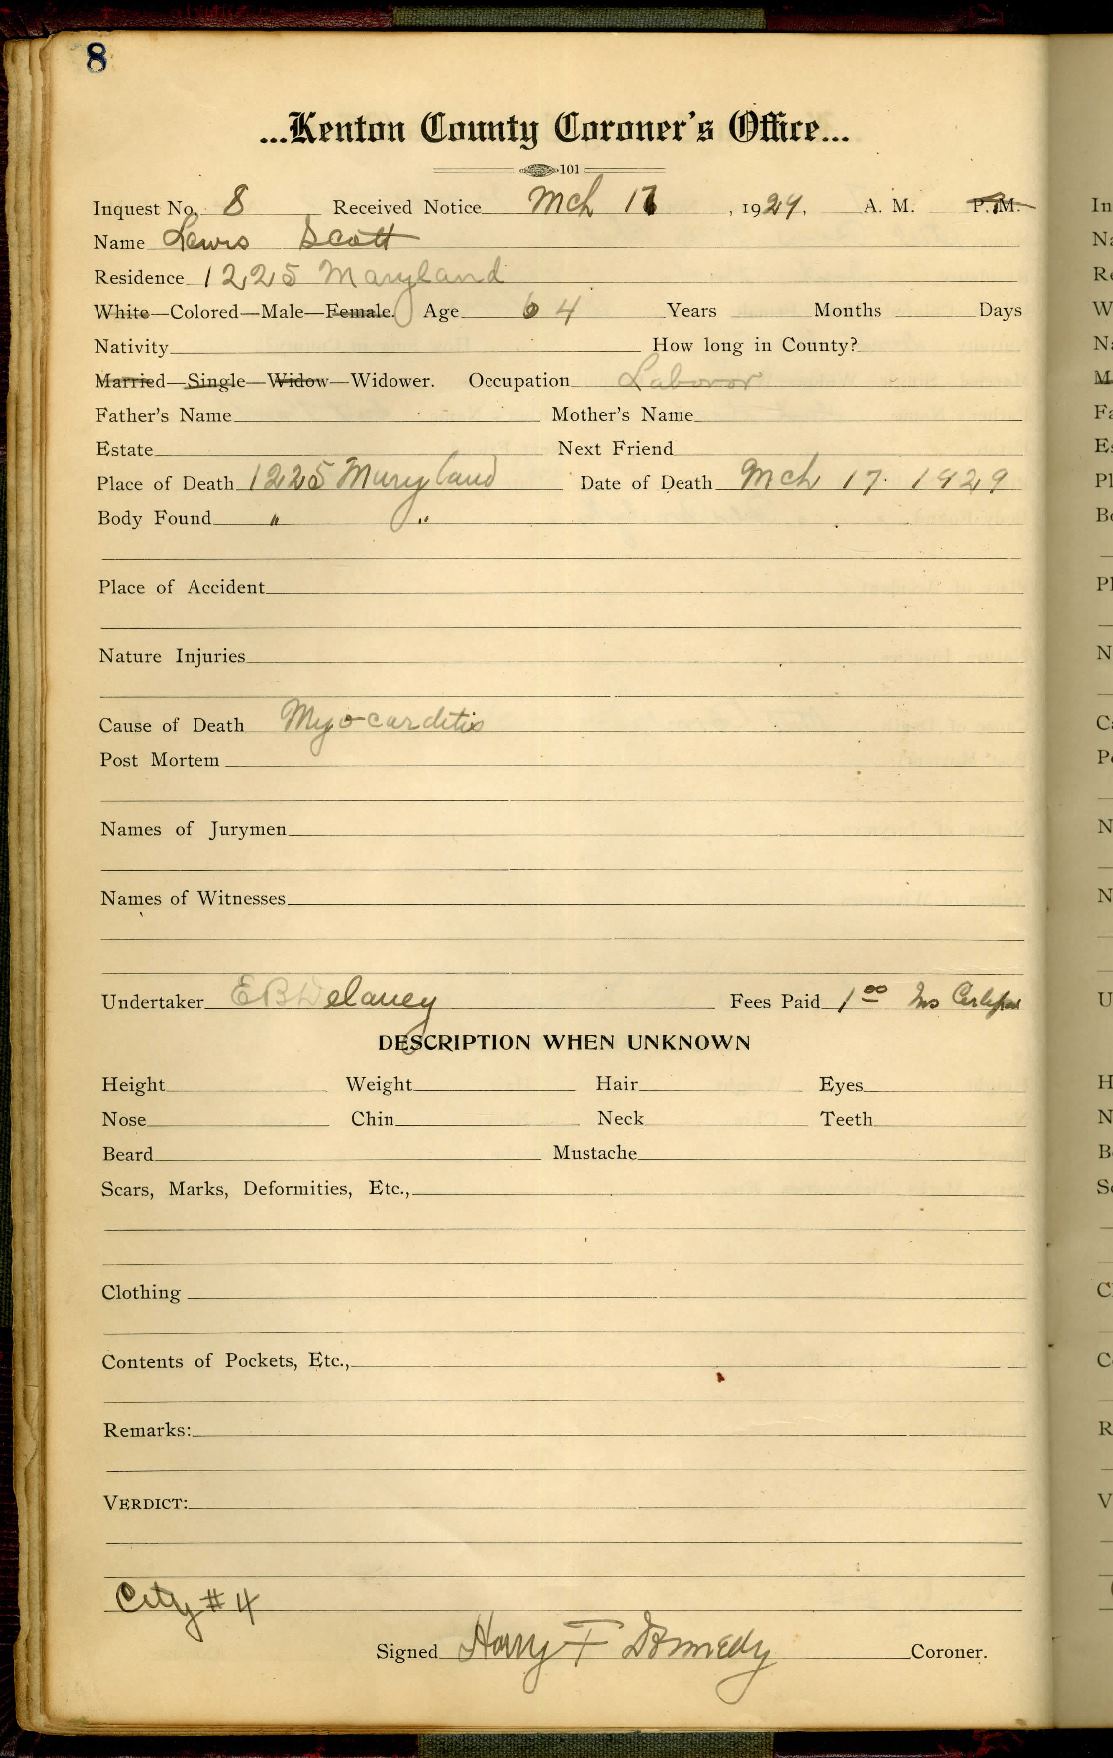 8
...Kenton County Coroner's Office...
101
Inquest No. 8 Received Notice Mch 17, 1929, A. M. P. M.
Name Lewis Scott
Residence 1225 Maryland
White—Colored—Male—Female. Age 64 Years Months Days
Nativity How long in County?
Married—Single—Widow—Widower. Occupation Laboror
Father's Name Mother's Name
Estate Next Friend
Place of Death 1225 Maryland Date of Death Mch 17. 1929
Body Found " "
Place of Accident
Nature Injuries
Cause of Death Myo-carditis
Post Mortem
Names of Jurymen
Names of Witnesses
Undertaker E B Delaney Fees Paid 1.00
DESCRIPTION WHEN UNKNOWN
Height Weight Hair Eyes
Nose Chin Neck Teeth
Beard Mustache
Scars, Marks, Deformities, Etc.,
Clothing
Contents of Pockets, Etc.,
Remarks:
VERDICT:
City # 4
Signed Harry F Coroner.